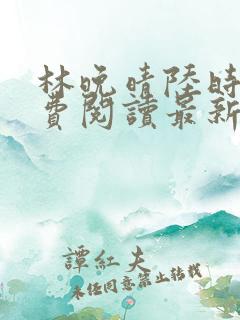 林晚晴陸時
費閱讀最新
譚紅夫
未经同意禁止转载